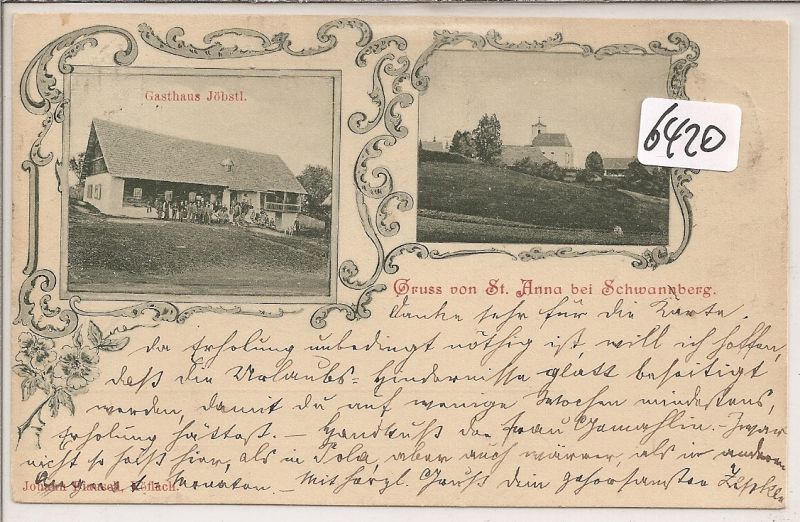 Gasthaus Jöbstl.
6420
Gruss von St. Anna bei Schwannberg.
Danke sehr für die Karte.
da Erholung unbedingt nöthig ist, will ich hoffen,
daß die Urlaubs-Hindernisse glatt beseitigt
werden, damit du auf wenige Wochen mindestens,
Erholung hättest. – Handkuß der Frau Gemahlin. – Zwar
nicht so heiß hier, als in Pola, aber auch wärmer, als in anderen
Monaten – Mit herzl. Gruß dein gehorsamster
Johann Köflach.